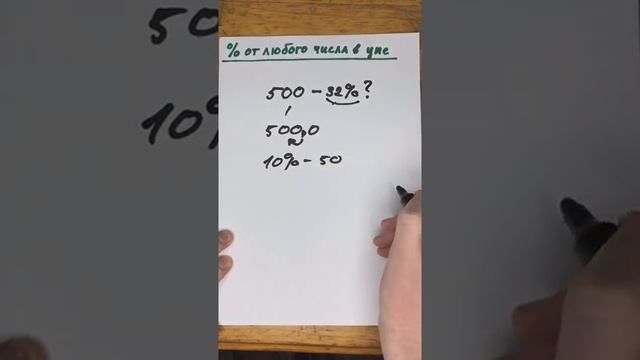 % от любого числа в уме
500 – 32% ?
500,0
10% – 50